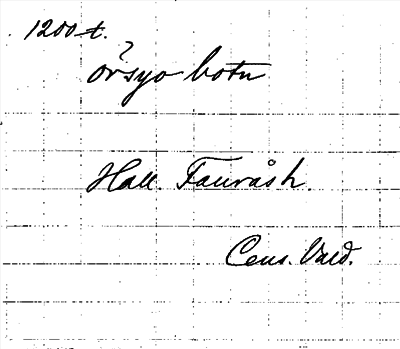 1200 t.
?
örsyo botn
Hall. Faurås h.
Cens. Vald.